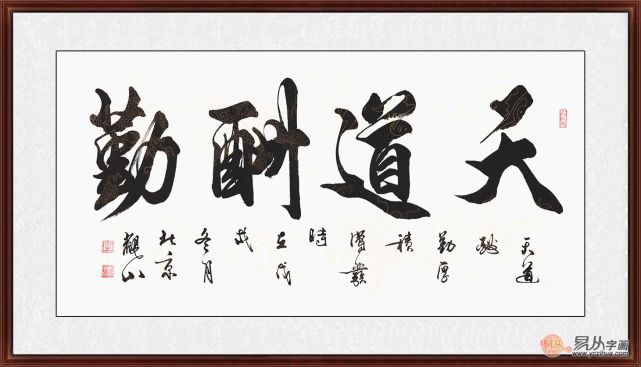 天道酬勤
天道
酬
勤厚
積
薄發
時
在戊
戌
冬月
北京
易从
易从字画
www.yczihua.com